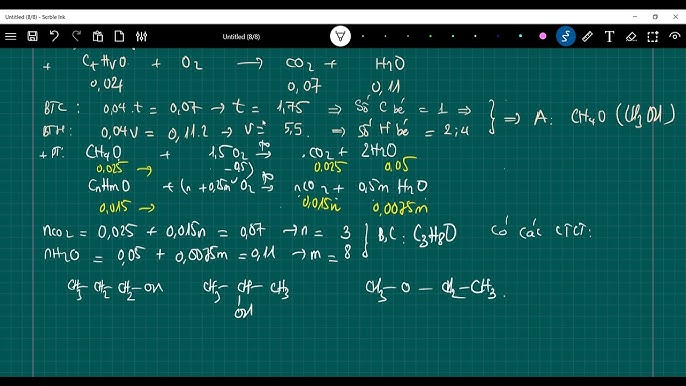 Untitled (8/8) - Scrble Ink
Untitled (8/8)
+ CtHvO + O2 → CO2 + H2O
0,024 0,07 0,11
BTC: 0,04.t = 0,07 → t = 1,75 ⇒ Số C bé = 1 ⇒
BTH: 0,04v = 0,11.2 → v = 5,5. ⇒ Số H bé = 2;4 } ⇒ A: CH4O (CH3OH)
+ PT: CH4O + 1,5O2 →to CO2 + 2H2O
0,025 → 0,025 0,05
CnHmO + (n + 0,25m - 0,5) O2 →to nCO2 + 0,5m H2O
0,015 → 0,015n 0,0075m
nCO2 = 0,025 + 0,015n = 0,07 → n = 3
nH2O = 0,05 + 0,0075m = 0,11 → m = 8 } B,C: C3H8O Có các CTCT:
CH3 - CH2 - CH2 - OH CH3 - CH - CH3 CH3 - O - CH2 - CH3.
OH